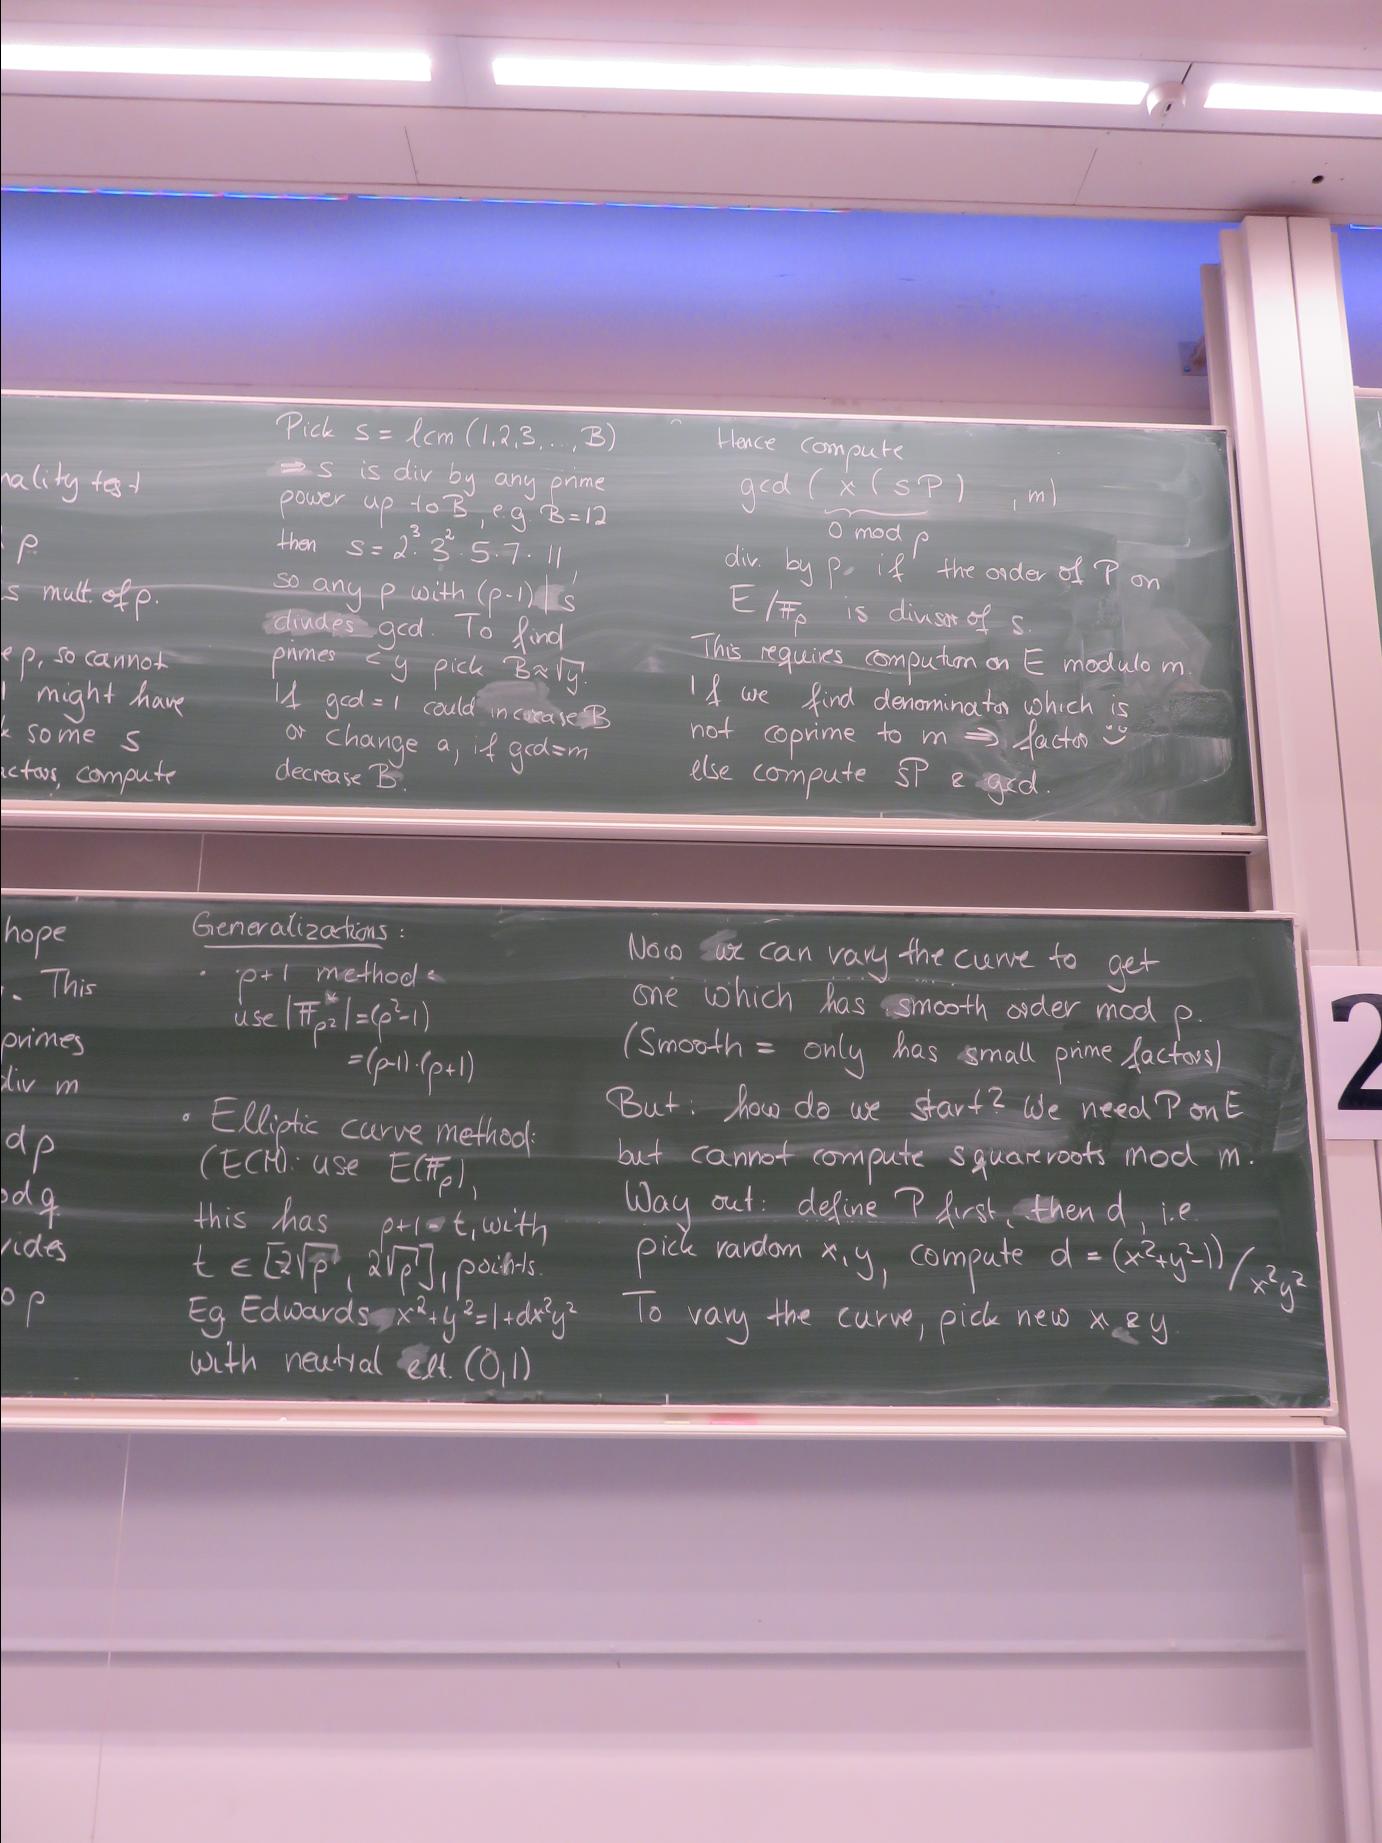 nality test
p
s mult. of p.
e p, so cannot
might have
some s
actors, compute
Pick s = lcm (1,2,3, ..., B)
⇒ s is div by any prime
power up to B, e.g. B=12
then s = 2³·3²·5·7·11,
so any p with (p-1) | s
divides gcd. To find
primes < y pick B ≈ √y.
If gcd = 1 could increase B
or change a, if gcd=m
decrease B.
Hence compute
gcd ( x (sP) , m)
0 mod p
div. by p if the order of P on
E/𝔽p is divisor of s.
This requires computation on E modulo m.
If we find denominator which is
not coprime to m ⇒ factor :)
else compute sP & gcd.
hope
. This
primes
div m
d p
od q
vides
o p
Generalizations:
· p+1 method:
use |𝔽*p²| = (p²-1)
= (p-1)·(p+1)
· Elliptic curve method:
(ECM): use E(𝔽p),
this has p+1-t, with
t ∈ [-2√p, 2√p], points.
Eg Edwards x²+y²=1+dx²y²
with neutral elt. (0,1)
Now we can vary the curve to get
one which has smooth order mod p.
(Smooth = only has small prime factors)
But: how do we start? We need P on E
but cannot compute squareroots mod m.
Way out: define P first, then d, i.e.
pick random x, y, compute d = (x²+y²-1)/x²y²
To vary the curve, pick new x & y
2